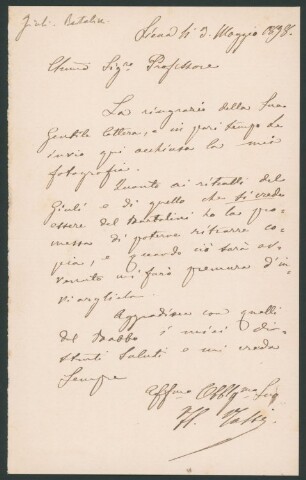 Siena li 3. Maggio 1898.
Professore
La ringrazio della Sua
Gentile lettera, e in pari tempo Le
invio qui acchiusa la mia
fotografia.
Quanto ai ritratti del
e di quello che si crede
essere del Bartalini ho la pro-
messa di poterne ritrarre co-
pia, e quando ciò sarà av-
venuto mi farò premura d'in-
viarglielo.
Aggradisca con quelli
del Babbo i miei di-
stinti Saluti e mi creda
Sempre